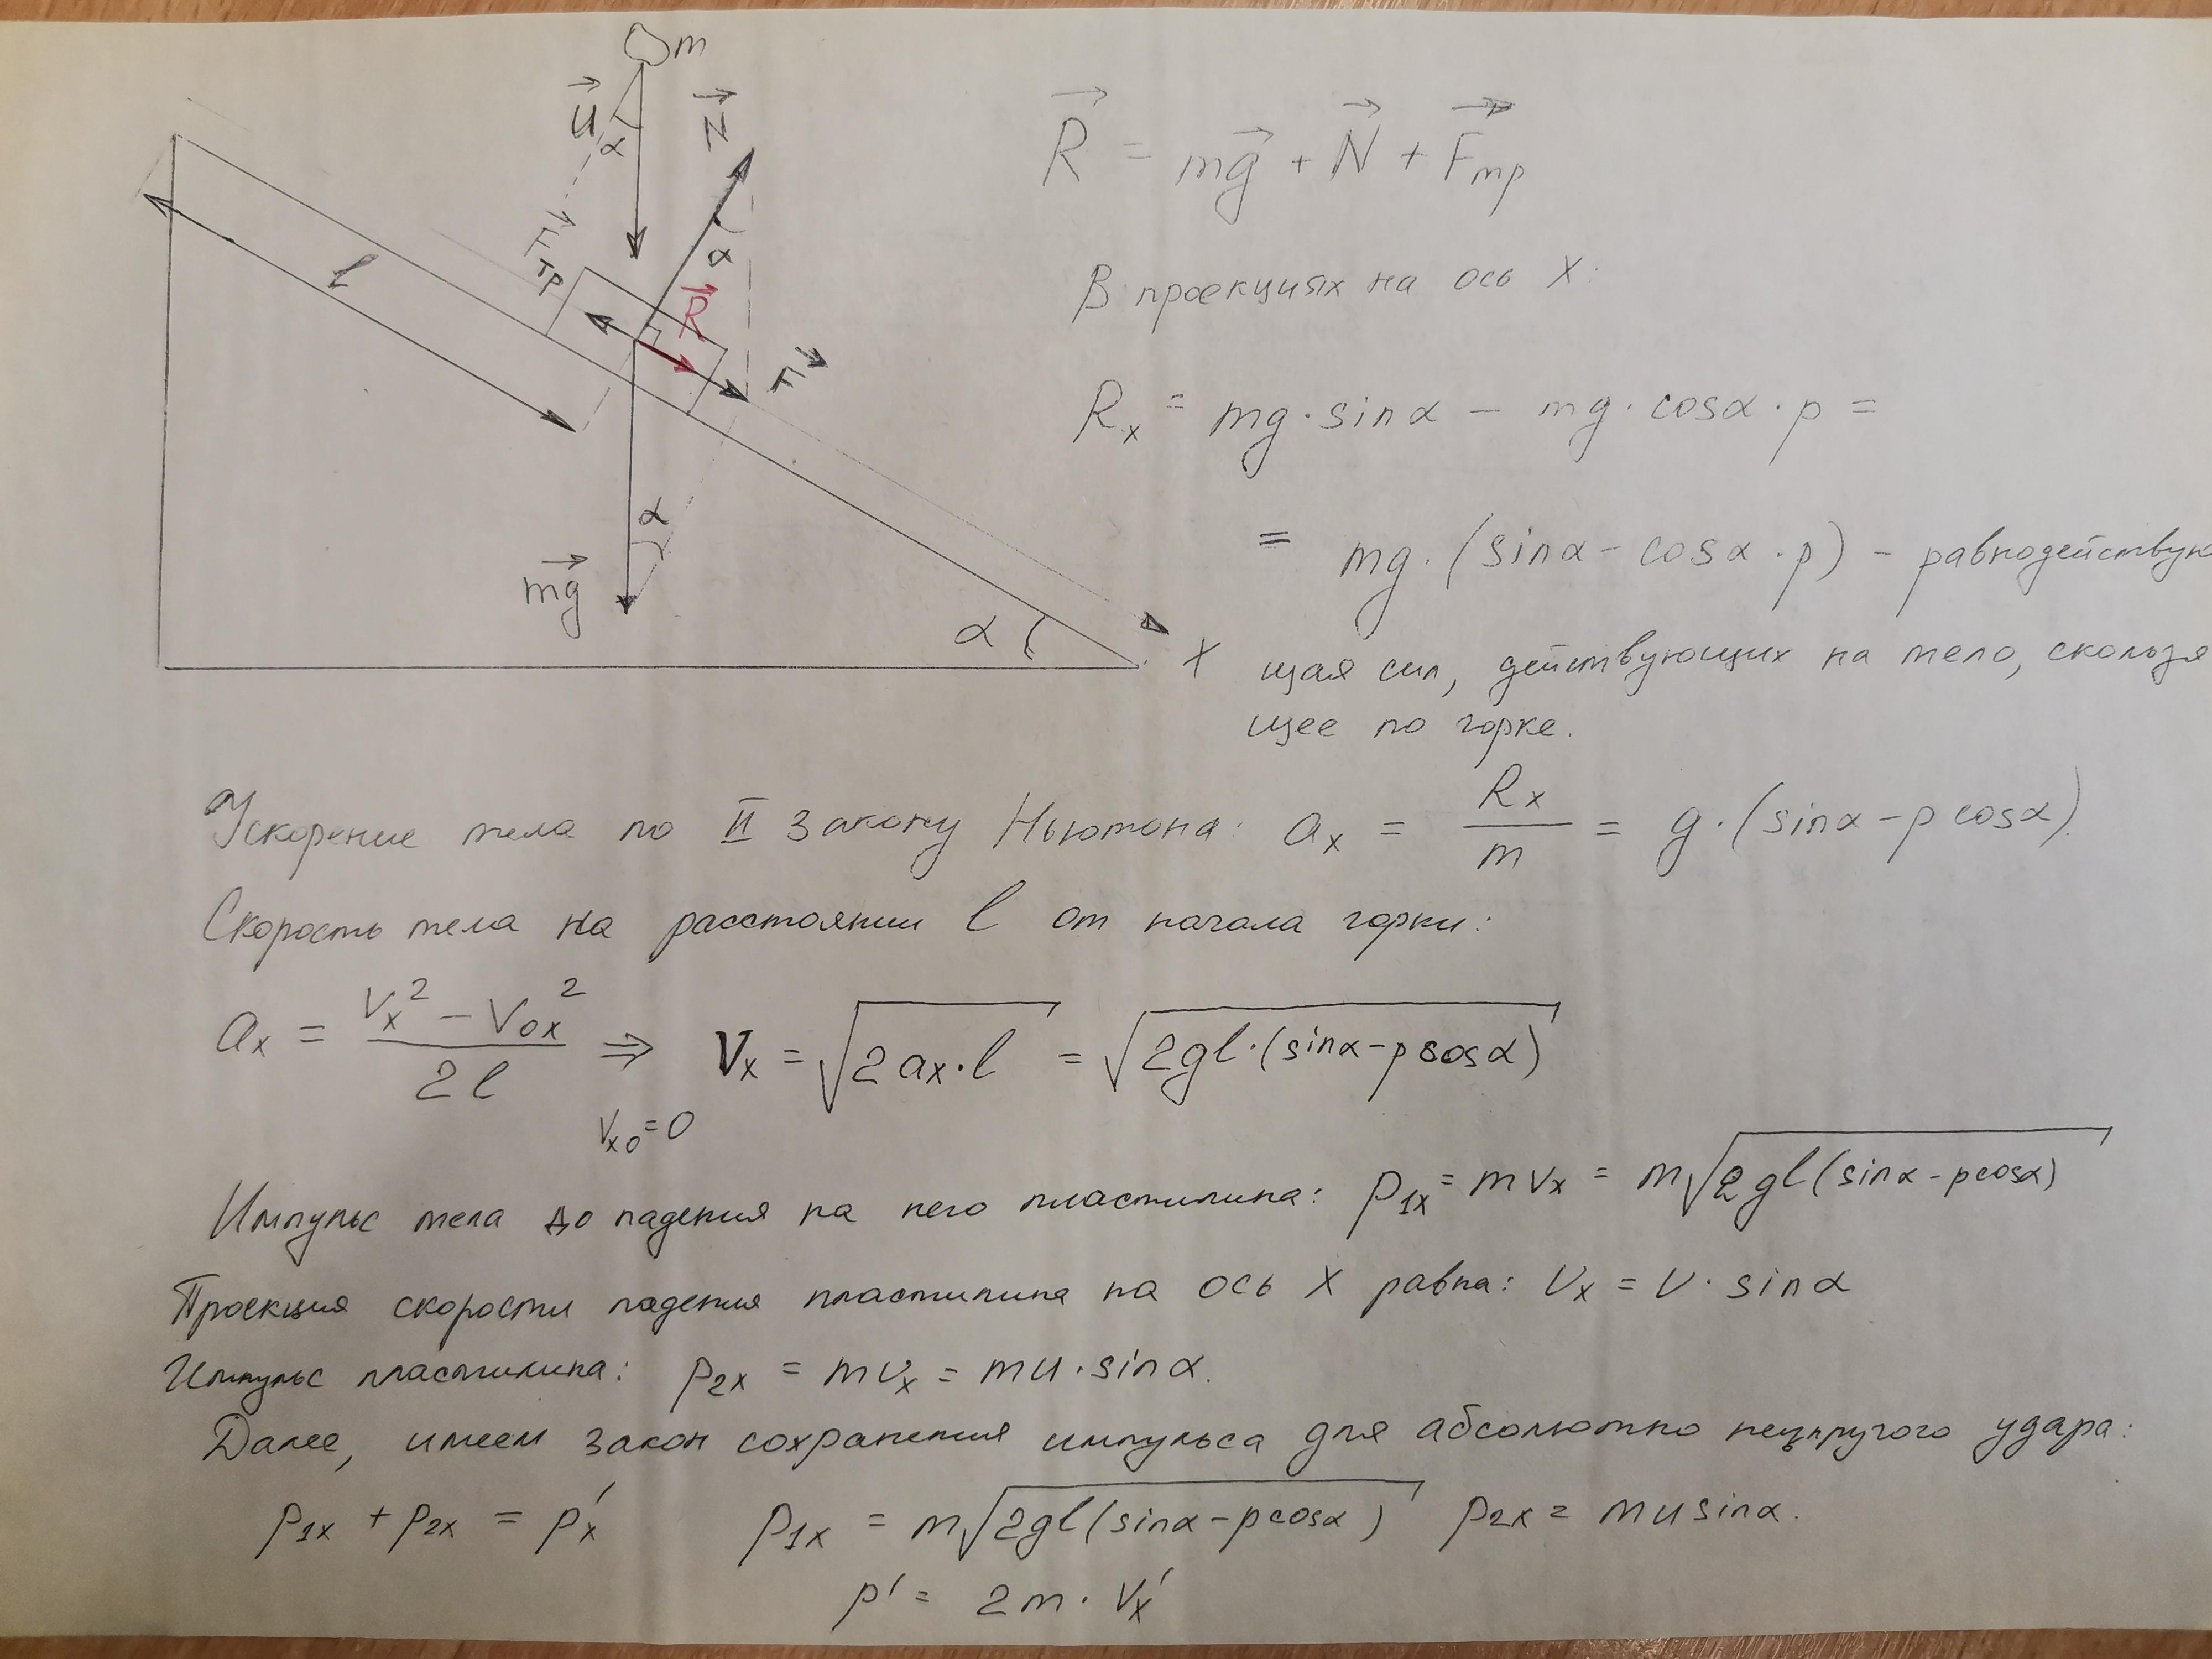 m
U⃗
α
N⃗
α
F⃗тр
R⃗
F⃗
l
α
mg⃗
α
X
R⃗ = mg⃗ + N⃗ + F⃗тр
В проекциях на ось X:
Rx = mg·sinα − mg·cosα·p =
= mg·(sinα − cosα·p) − равнодействую
щая сил, действующих на тело, скользя
щее по горке.
Ускорение тела по II закону Ньютона: ax = Rx/m = g·(sinα − p cosα).
Скорость тела на расстоянии l от начала горки:
ax = (Vx² − V0x²)/2l ⇒ Vx = √(2ax·l) = √(2gl·(sinα − p cosα))
Vx0 = 0
Импульс тела до падения на него пластилина: p1x = mVx = m√(2gl(sinα − p cosα))
Проекция скорости падения пластилина на ось X равна: Vx = V·sinα
Импульс пластилина: p2x = mVx = mu·sinα.
Далее, имеем закон сохранения импульса для абсолютно неупругого удара:
p1x + p2x = p'x p1x = m√(2gl(sinα − p cosα)) p2x = mu sinα.
p' = 2m·V'x